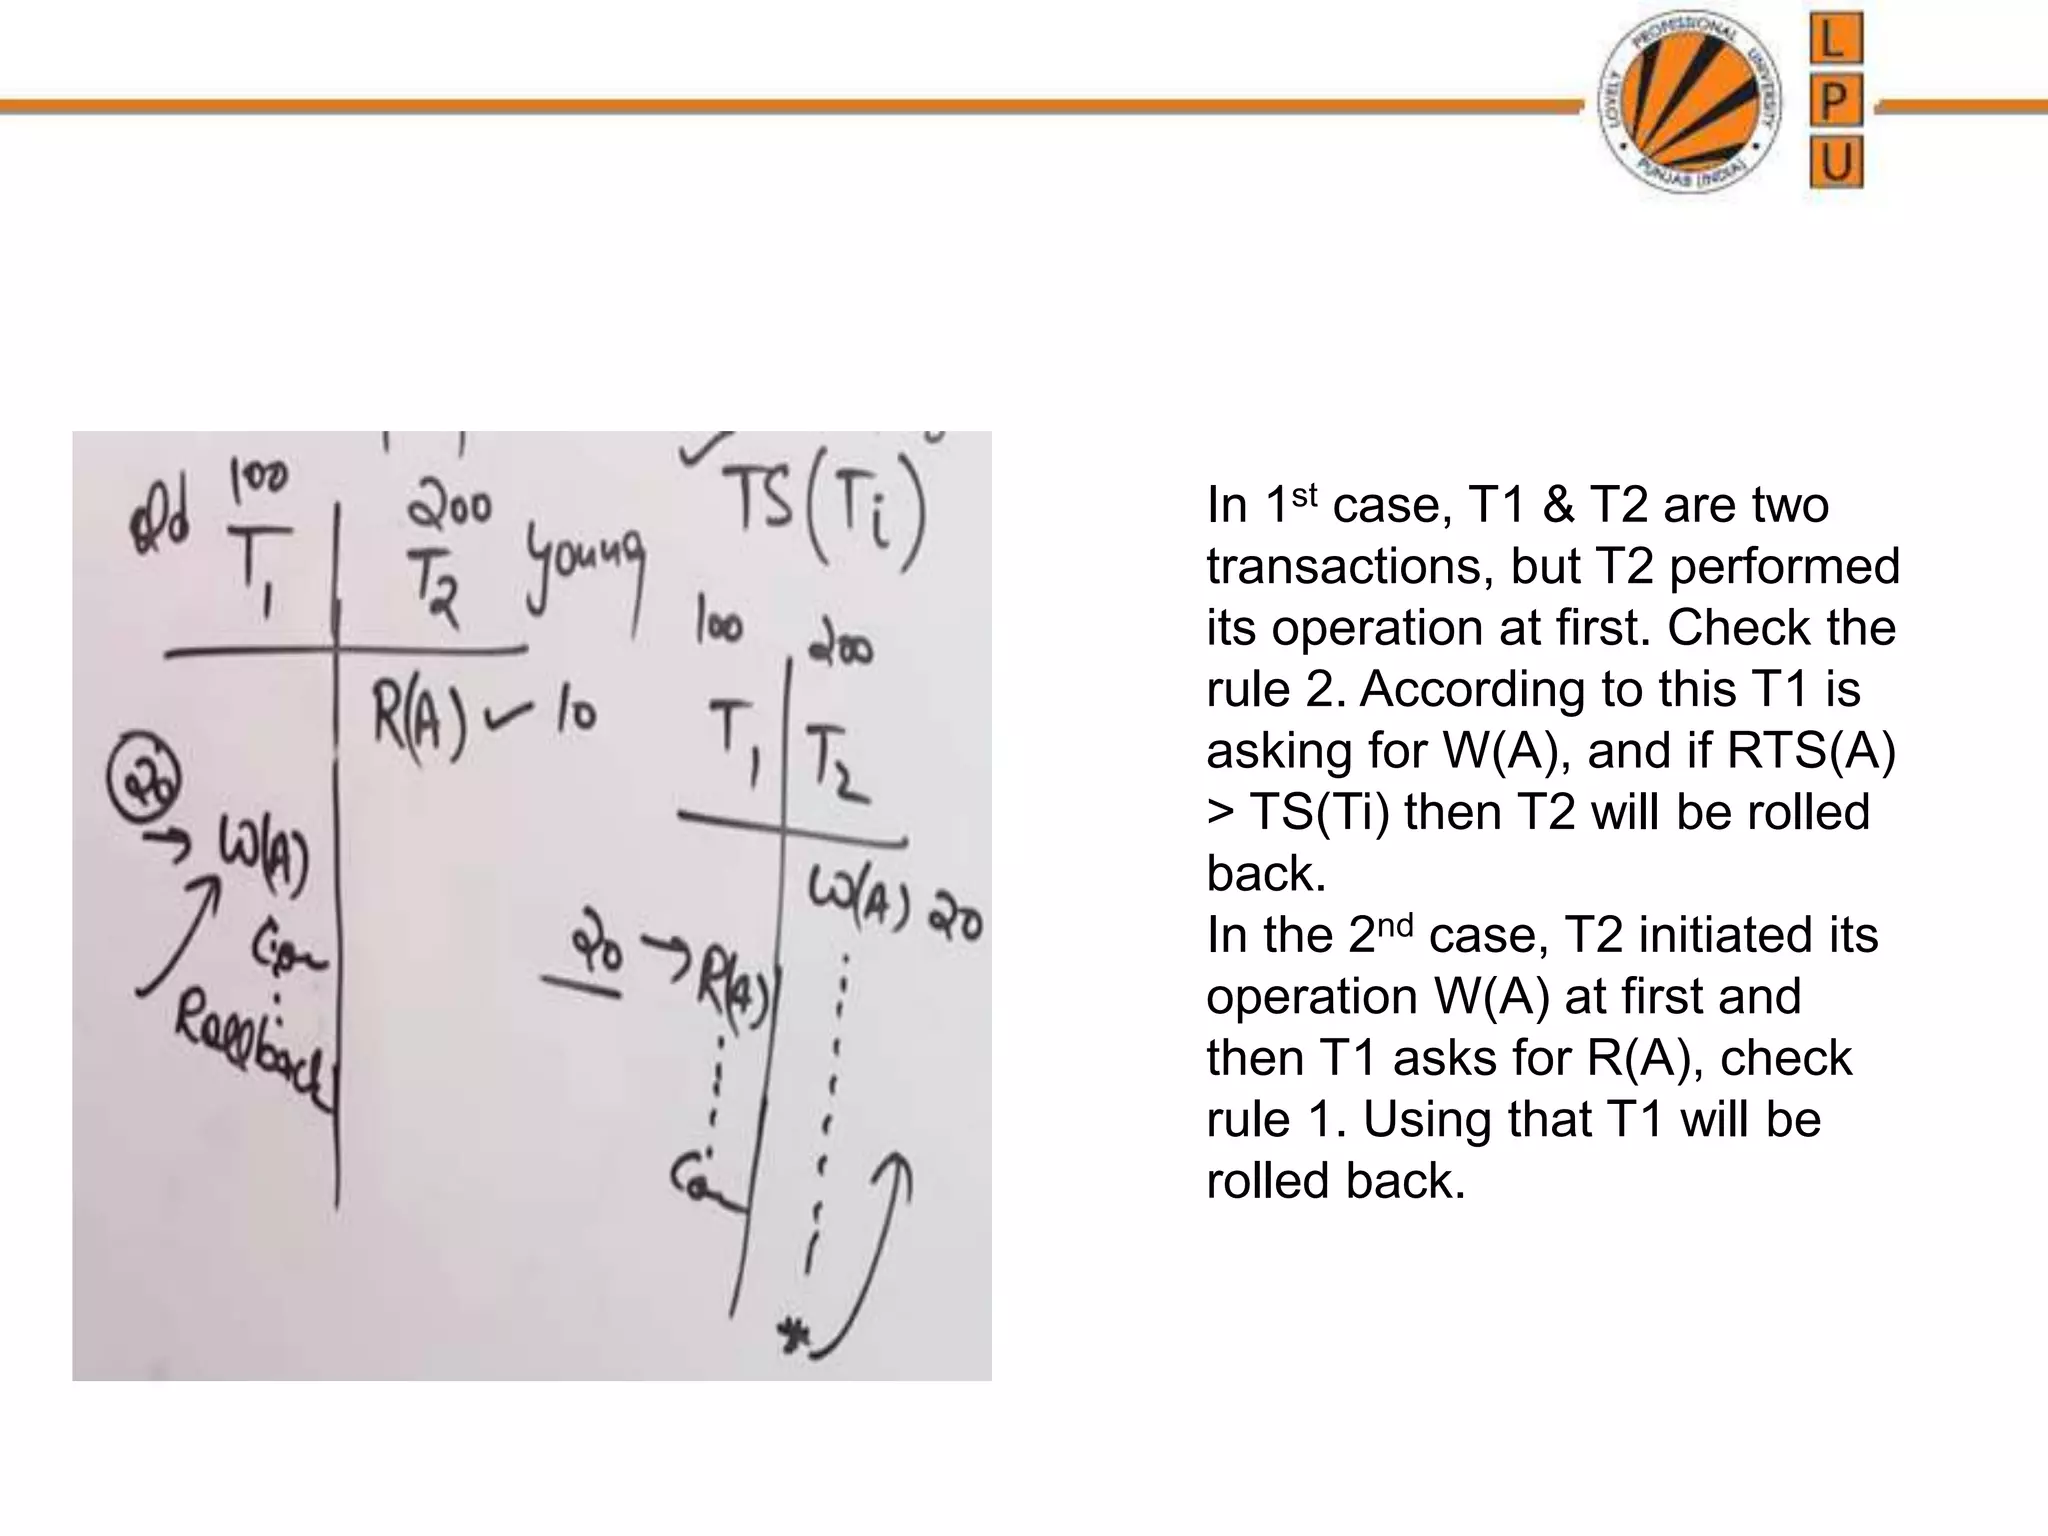 LOVELY PROFESSIONAL UNIVERSITY
PUNJAB (INDIA)
L
P
U
Old 100 200
T1 T2 young
R(A) ✓ 10
20
→ W(A)
Com
Rollback
✓ TS(Ti)
100 200
T1 T2
W(A) 20
20 → R(A)
Com
*
In 1st case, T1 & T2 are two
transactions, but T2 performed
its operation at first. Check the
rule 2. According to this T1 is
asking for W(A), and if RTS(A)
> TS(Ti) then T2 will be rolled
back.
In the 2nd case, T2 initiated its
operation W(A) at first and
then T1 asks for R(A), check
rule 1. Using that T1 will be
rolled back.